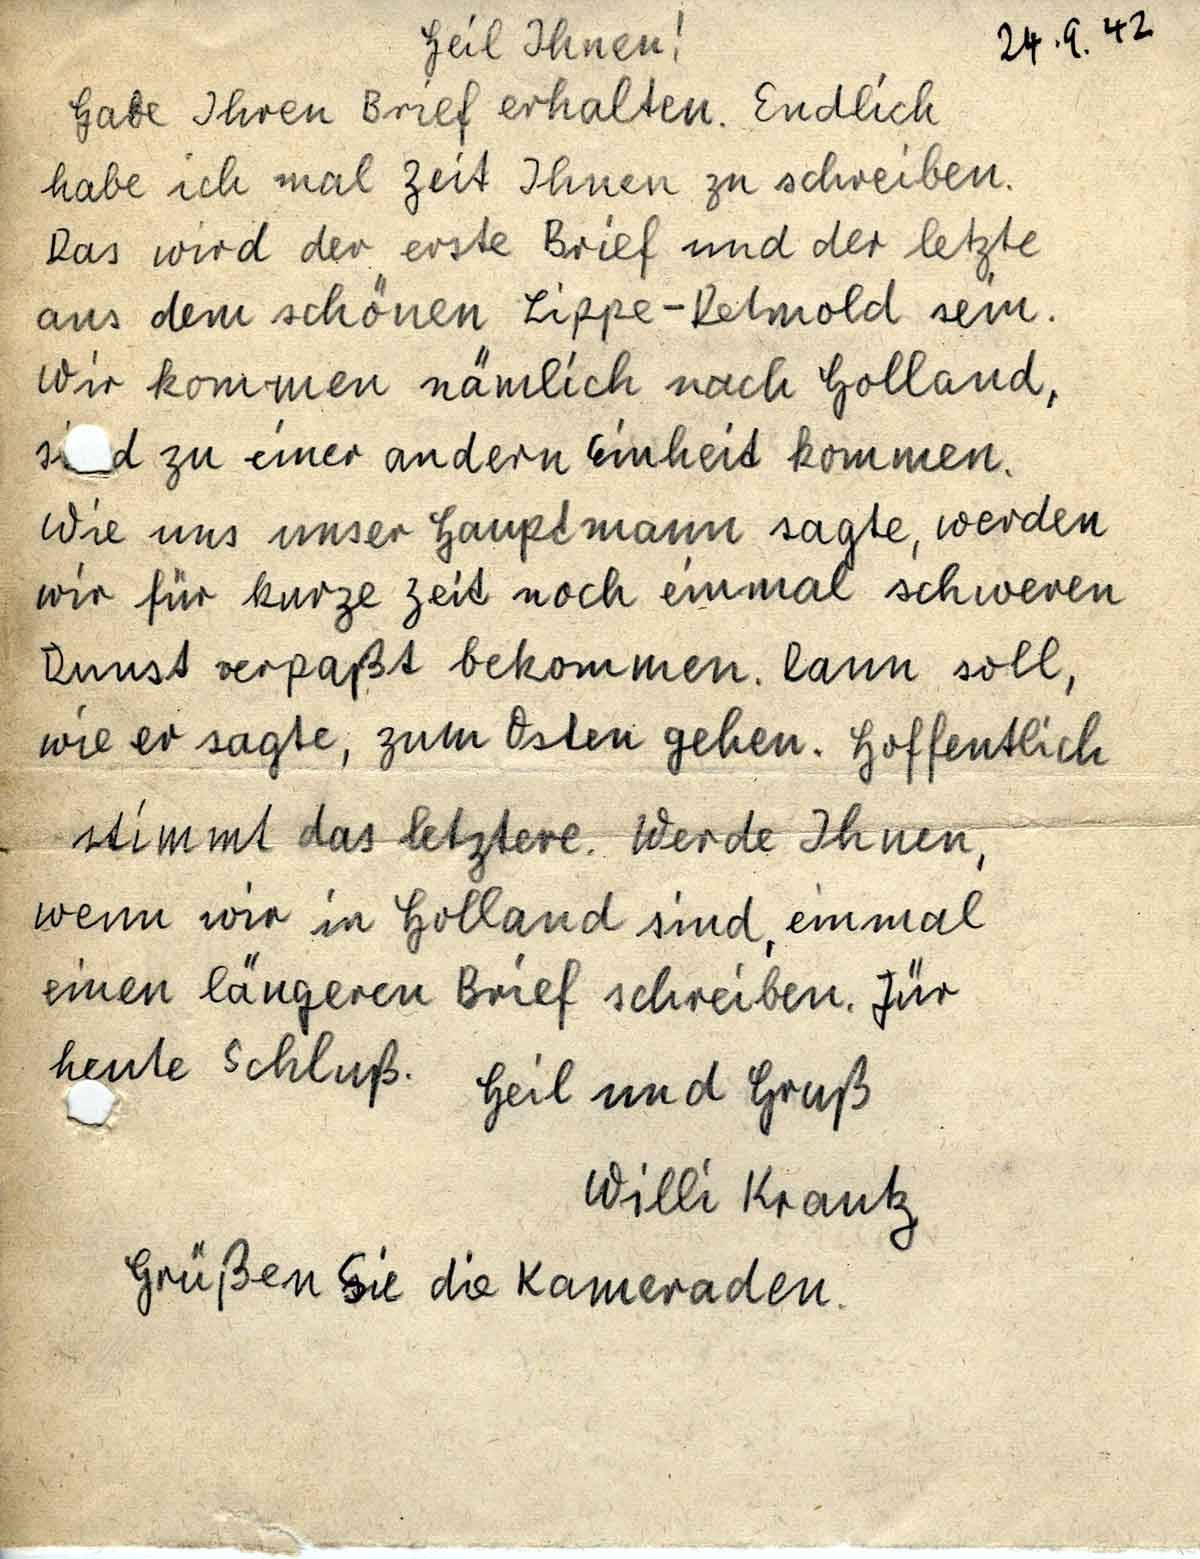 24.9.42
Heil Ihnen!
Habe Ihren Brief erhalten. Endlich
habe ich mal Zeit Ihnen zu schreiben.
Das wird der erste Brief und der letzte
aus dem schönen Lippe-Detmold sein.
Wir kommen nämlich nach Holland,
sind zu einer andern Einheit kommen.
Wie uns unser Hauptmann sagte, werden
wir für kurze Zeit noch einmal schweren
Dunst verpaßt bekommen. Dann soll,
wie er sagte, zum Osten gehen. Hoffentlich
stimmt das letztere. Werde Ihnen,
wenn wir in Holland sind, einmal
einen längeren Brief schreiben. Für
heute Schluß.
Heil und Gruß
Willi Krantz
Grüßen Sie die Kameraden.